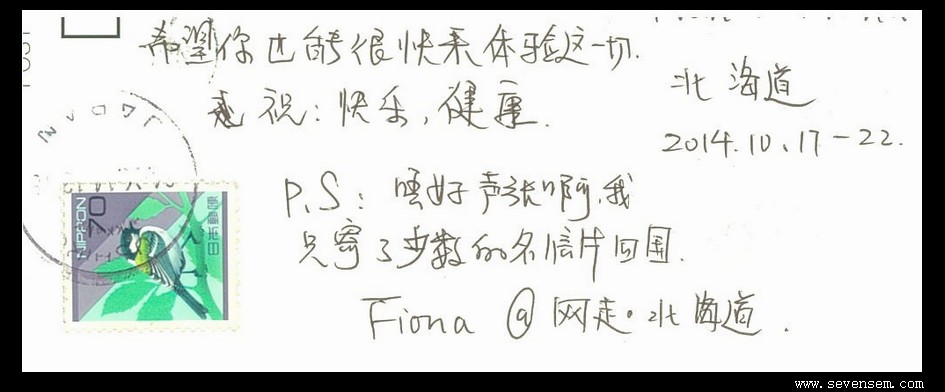 希望你也能很快来体验这一切.
祝:快乐,健康.
北海道
2014.10.17-22.
P.S: 唔好声张啊,我
只寄了少数的名信片回国.
Fiona @ 网走·北海道.
NIPPON 70
日本郵便
www.sevensem.com